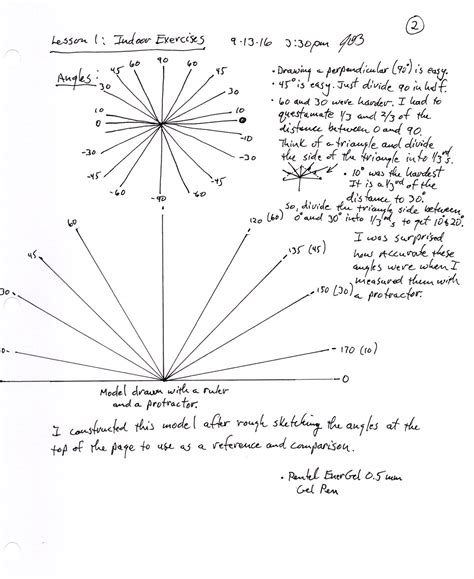 2
Lesson 1: Indoor Exercises 9-13-16 3:30pm
Angles:
90
60 60
45 45
30 30
10 10
0 0
-10
-30 -30
-45 -45
-60 -60
-90
• Drawing a perpendicular (90°) is easy.
• 45° is easy. Just divide 90 in half.
• 60 and 30 were harder. I had to
questamate 1/3 and 2/3 of the
distance between 0 and 90.
Think of a triangle and divide
the side of the triangle into 1/3rds.
• 10° was the hardest
It is a 1/3rd of the
distance to 30°
so, divide the triangle side between
0° and 30° into 1/3rds to get 10° & 20°.
I was surprised
how accurate these
angles were when I
measured them with
a protractor.
60
120 (60)
45
135 (45)
30
150 (30)
170 (10)
0
Model drawn with a ruler
and a protractor.
I constructed this model after rough sketching the angles at the
top of the page to use as a reference and comparison.
• Pentel EnerGel 0.5 mm
Gel Pen